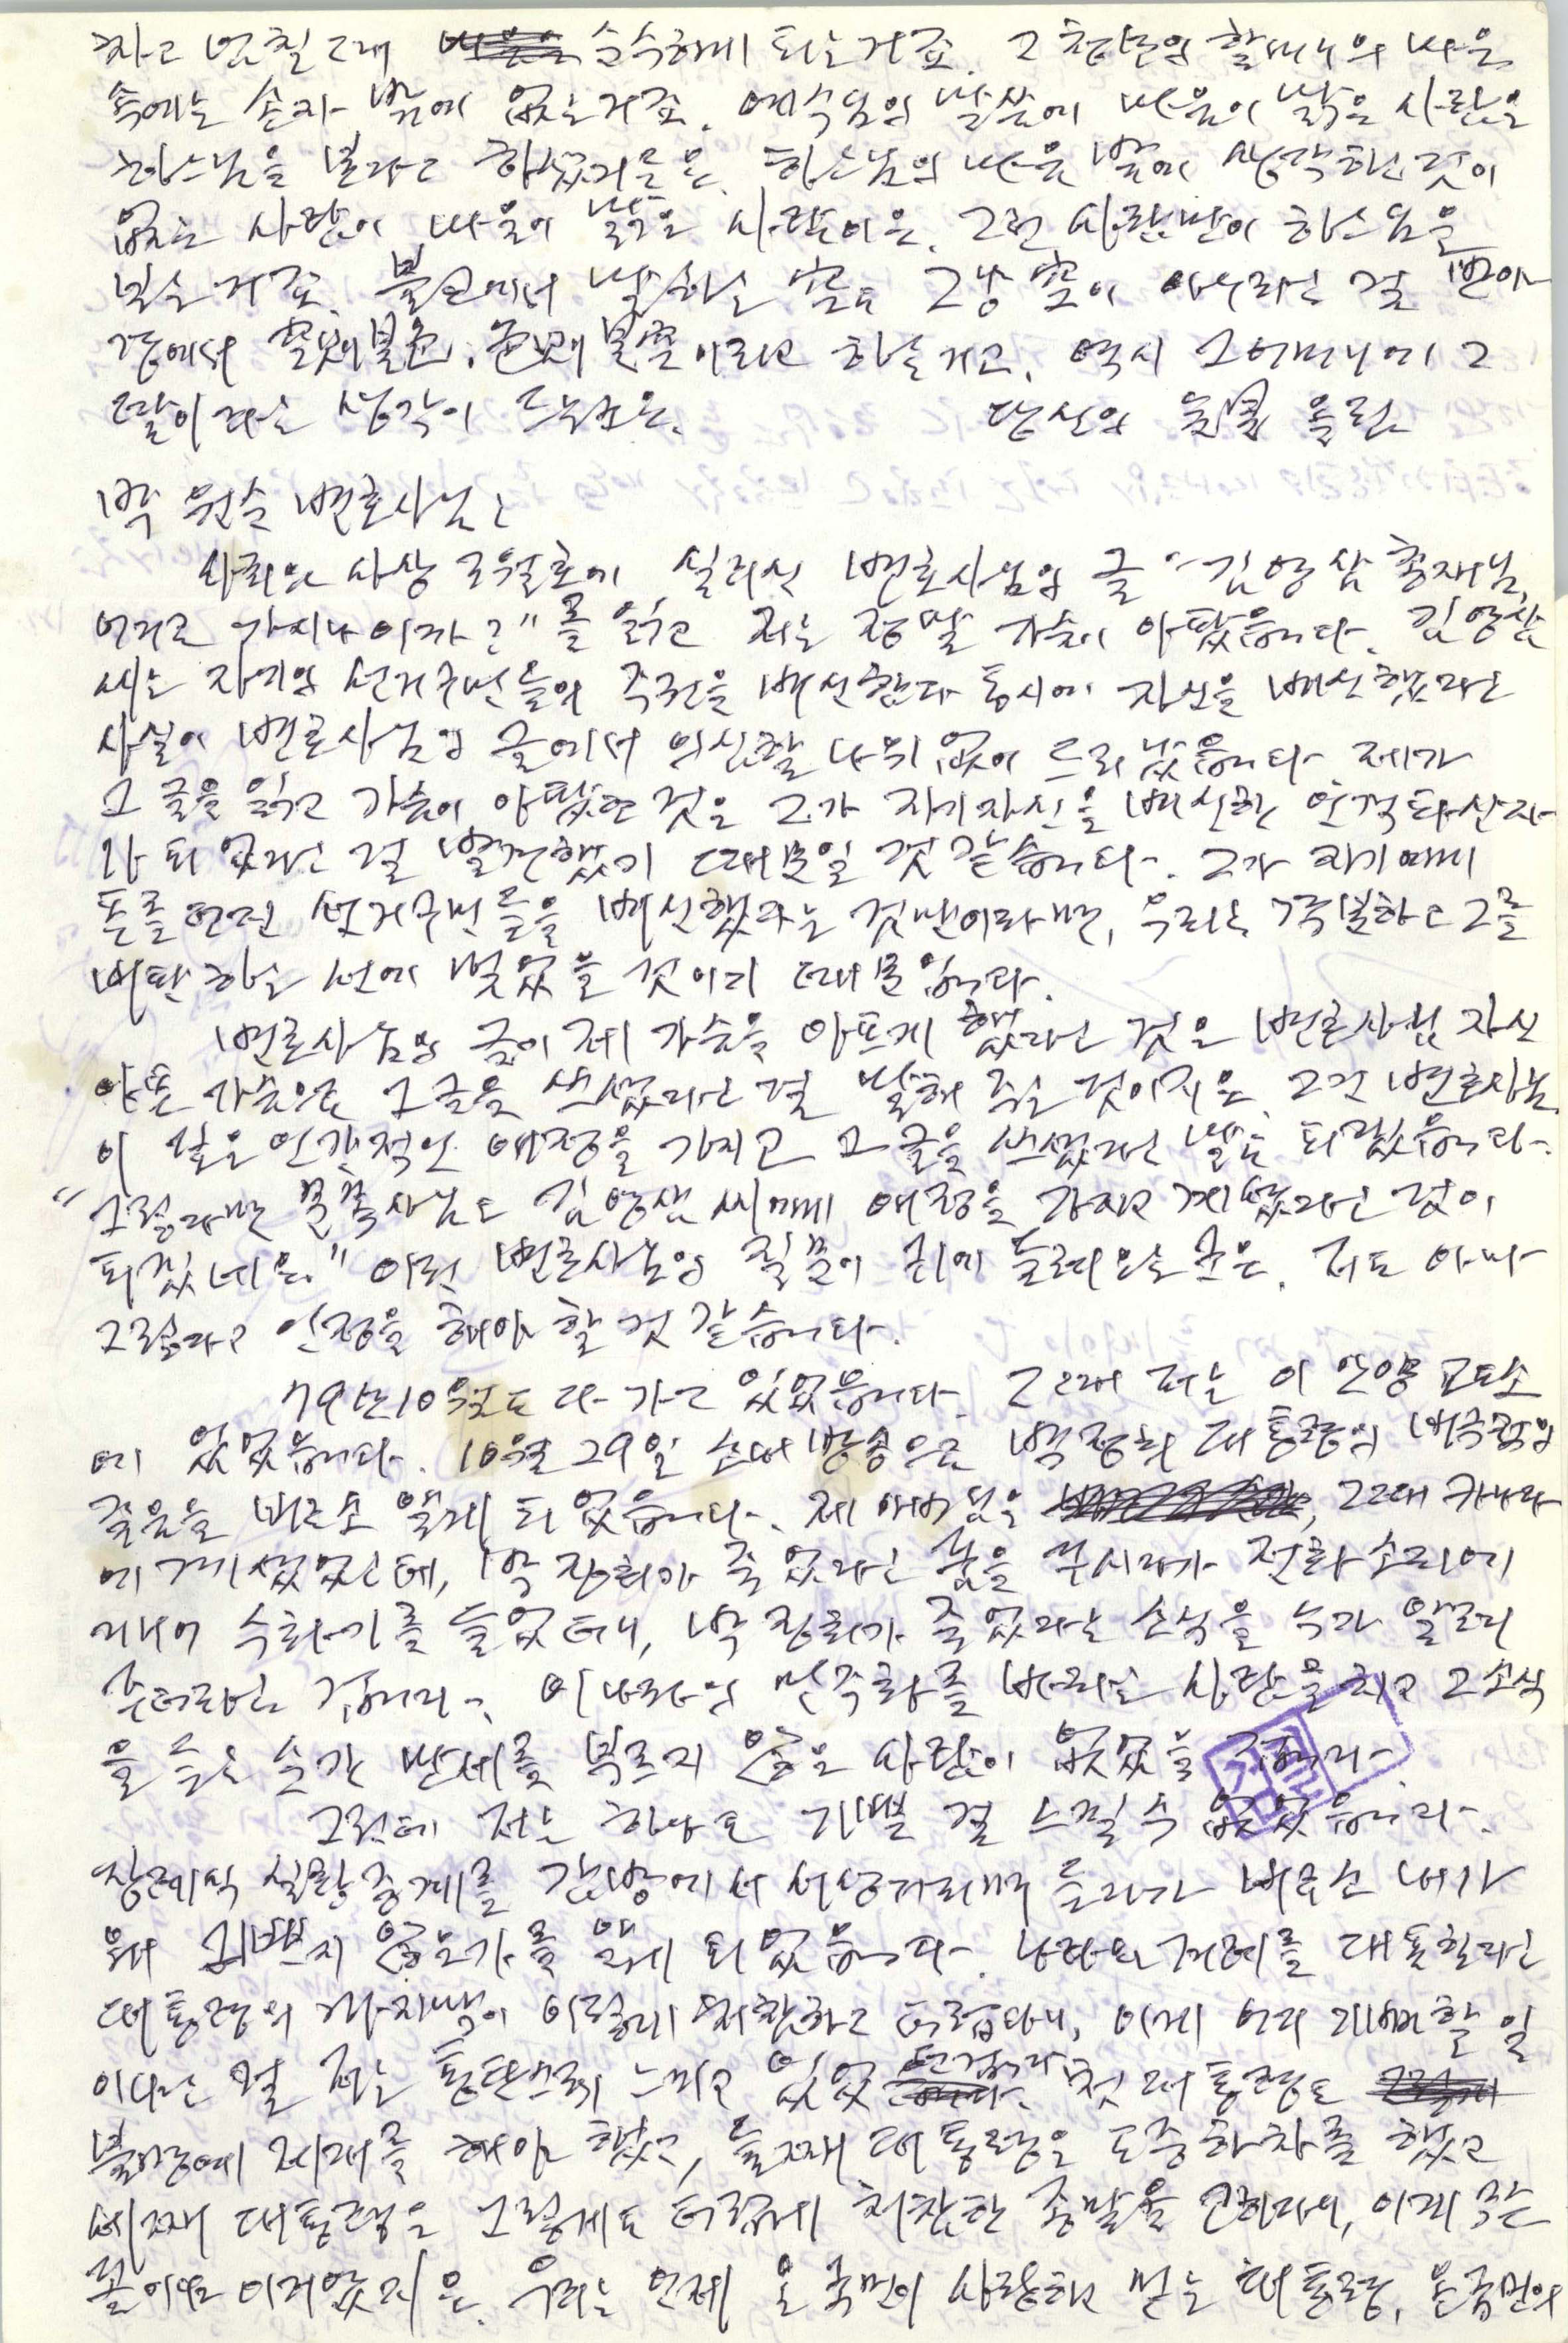 하고 민칠 그때 순수하게 되는 거죠. 그 청년의 할머니의 마음
속에는 손자 밖에 없는 거죠. 예수님의 말씀에 마음이 맑은 사람은
하느님을 본다고 하셨거든요. 하느님의 마음 밖에 생각하는 것이
없는 사람이 마음이 맑은 사람이요. 그런 사람만이 하느님을
보는 거죠. 불교에서 말하는 空도 그냥 空이 아니라는 걸 반야
경에서 空則不空, 이라고 하는 거고. 역시 그 어머니에 그
딸이라는 생각이 드는군요. 당신의 늦봄 올림
박 원순 변호사님 :
사회와 사상 3월호에 실리신 변호사님의 글 “김영삼 총재님,
어디로 가시나이까?”를 읽고 저는 정말 가슴이 아팠습니다. 김영삼
씨는 자기의 선거구민들의 주권을 배신함과 동시에 자신을 배신했다는
사실이 변호사님의 글에서 의심할 나위 없이 드러났습니다. 제가
그 글을 읽고 가슴이 아팠던 것은 그가 자기자신을 배신한 인격파산자
가 되었다는 걸 발견했기 때문일 것 같습니다. 그가 자기에게
표를 던진 선거구민들을 배신했다는 것만이라면, 우리는 격분하고 그를
비판하는 선에 멎었을 것이기 때문입니다.
변호사님의 글이 제 가슴을 아프게 했다는 것은 변호사님 자신
아픈 가슴으로 그 글을 쓰셨다는 걸 말해 주는 것이지요. 그건 변호사님
이 깊은 인간적인 애정을 가지고 그 글을 쓰셨다는 말도 되겠습니다.
“그렇다면 목사님도 김영삼 씨에게 애정을 가지고 계셨다는 것이
되겠네요.” 이런 변호사님의 질문이 귀에 들려오는군요. 저도 아마
그렇다고 인정을 해야 할 것 같습니다.
79년 10월도 다 가고 있었습니다. 그때 저는 이 안양 교도소
에 있었습니다. 10월 29일 소내 방송으로 박정희 대통령의 비극적인
죽음을 비로소 알게 되었습니다. 제 어머님은 그때 캐나다
에 계셨었는데, 박정희가 죽었다는 꿈을 꾸시다가 전화 소리에
깨어 수화기를 들었더니, 박정희가 죽었다는 소식을 누가 알려
주더라는 겁니다. 이 나라의 민주화를 바라는 사람들 치고 그 소식
을 듣는 순간 만세를 부르지 않은 사람이 없었을 겁니다.
그런데 저는 하나도 기쁜 걸 느낄 수 없었습니다.
장례식 실황 중계를 감방에서 서성거리며 듣다가 비로소 내가
왜 기쁘지 않은가를 알게 되었습니다. 나라와 겨레를 대표한다는
대통령의 마지막이 이렇게 처참하고 더럽다니, 이게 어디 기뻐할 일
이냐는 걸 저는 통탄스럽게 느끼고 있었던 겁니다. 첫 대통령도
불명예 퇴진을 해야 했고, 둘째 대통령은 도중하차를 했고
세째 대통령은 그렇게도 더럽게 처참한 종말을 고하다니, 이게 무슨
꼴이란 이것이었지요. 우리는 언제 온 국민이 사랑하고 믿는 대통령, 온 국민의